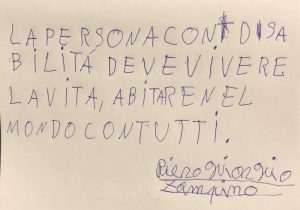 LA PERSONA CON DISA
BILITÁ DEVE VIVERE
LA VITA, ABITARE NEL
MONDO CON TUTTI.
Piero Giorgio
Zampino